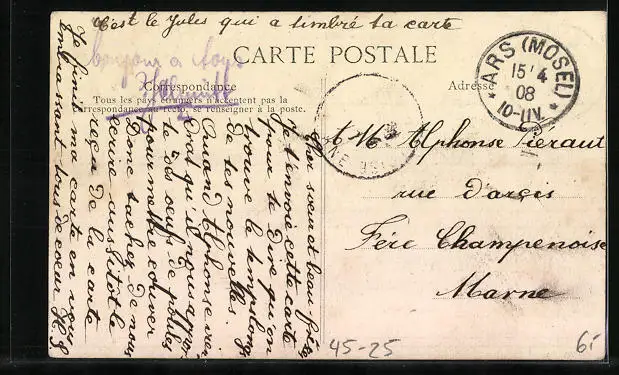 C'est le Jules qui a timbré ta carte
bonjour à tous
CARTE POSTALE
Correspondance
Adresse
Tous les pays étrangers n'acceptent pas la
correspondance au recto, se renseigner à la poste.
ARS (MOSEL)
15 4
08
10-11V.
A M Alphonse Piéraut
rue d'arcis
Fère Champenoise
Marne
Cher sœur et beau frère
Je t'envoie cette carte
pour te dire qu'on
trouve le temps long
de tes nouvelles.
Quand Alphonse
dirat qu'il nous
des œufs de
pour mettre couver
Donc tacher de nous
écrire aussitot la
reçu de la carte
Je finit ma carte en vous
embrassant tous de cœur
45-25
6.-